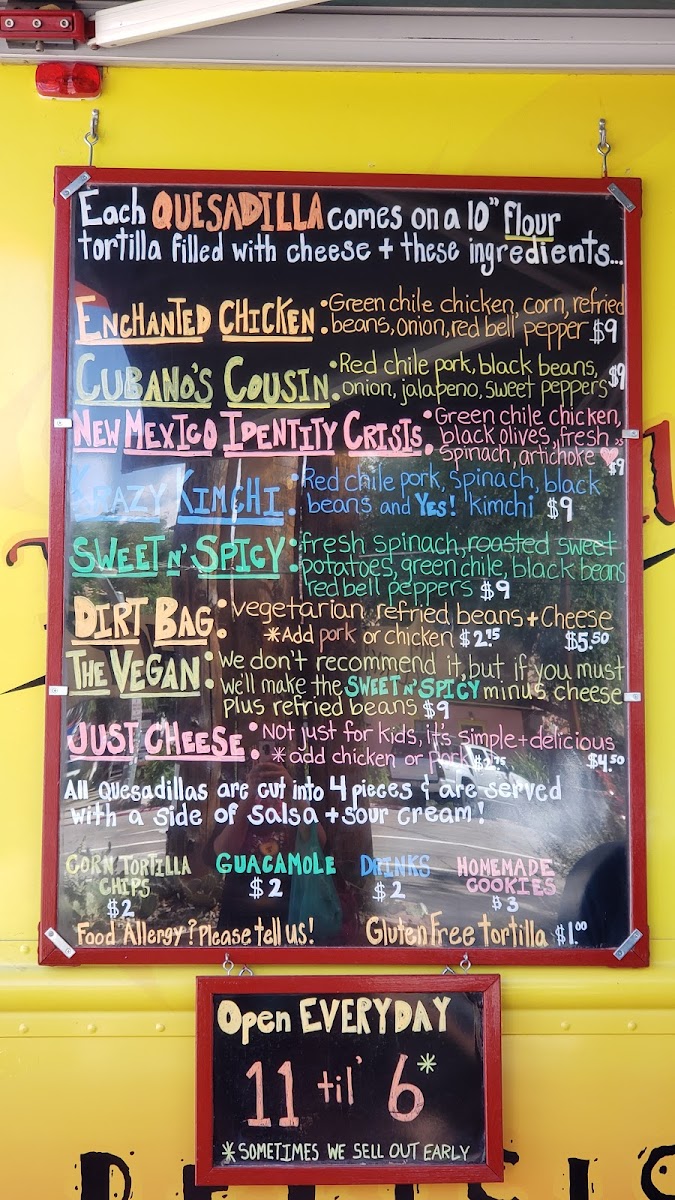 Each QUESADILLA comes on a 10" flour
tortilla filled with cheese + these ingredients...
ENCHANTED CHICKEN: Green chile chicken, corn, refried
beans, onion, red bell pepper $9
CUBANO'S COUSIN: Red chile pork, black beans,
onion, jalapeno, sweet peppers $9
NEW MEXICO IDENTITY CRISIS: Green chile chicken,
black olives, fresh
spinach, artichoke ♥ $9
KRAZY KIMCHI: Red chile pork, spinach, black
beans and YES! kimchi $9
SWEET N' SPICY: fresh spinach, roasted sweet
potatoes, green chile, black beans
red bell peppers $9
DIRT BAG: vegetarian refried beans + cheese
*Add pork or chicken $2.75 $5.50
THE VEGAN: We don't recommend it, but if you must
we'll make the SWEET N' SPICY minus cheese
plus refried beans $9
JUST CHEESE: Not just for kids, it's simple + delicious
* add chicken or pork $2.75 $4.50
All Quesadillas are cut into 4 pieces & are served
with a side of salsa + sour cream!
CORN TORTILLA
CHIPS
$2
GUACAMOLE
$2
DRINKS
$2
HOMEMADE
COOKIES
$3
Food Allergy? Please tell us!
Gluten Free tortilla $1.00
Open EVERYDAY
11 til' 6*
*SOMETIMES WE SELL OUT EARLY